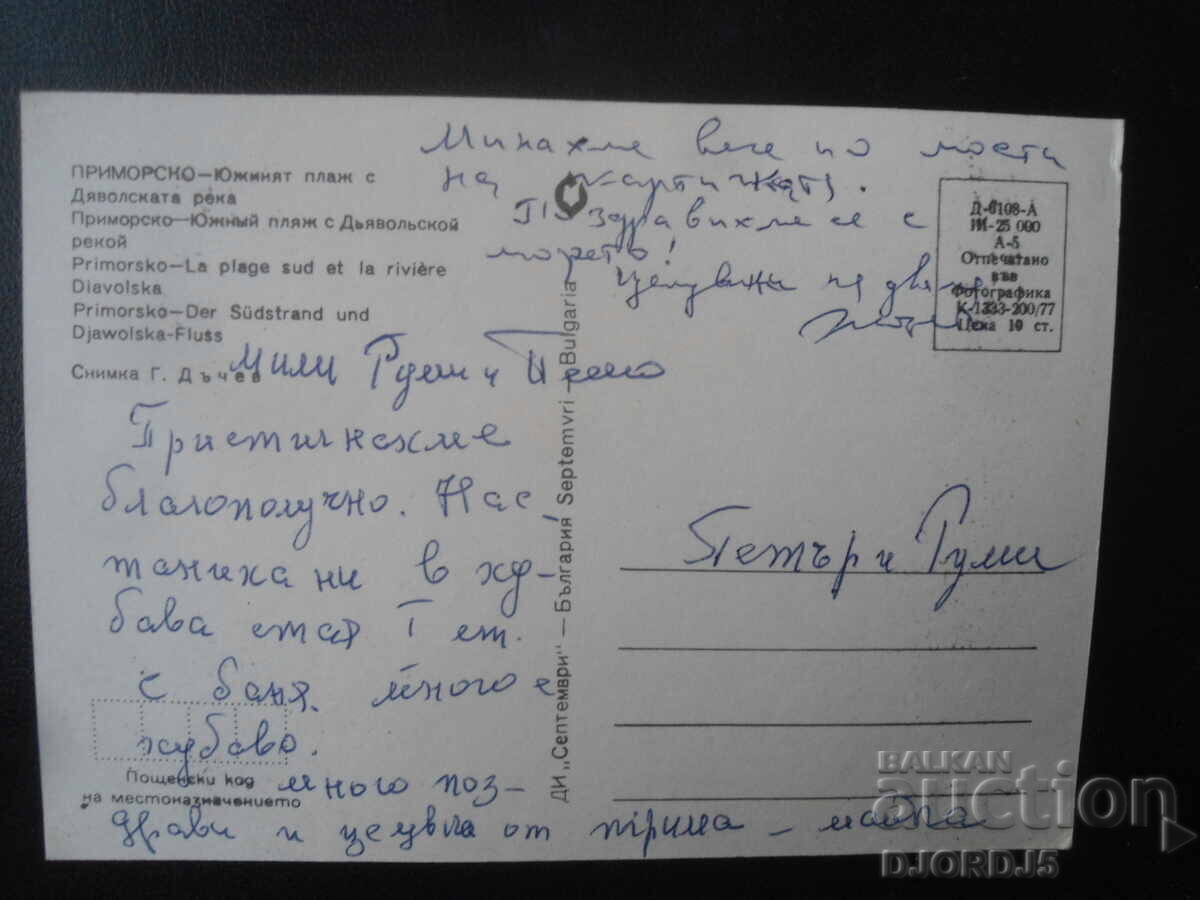 Минахме вече по моста
на картичката.
Поздравихме се с
морето!
Целувки на двама
ПРИМОРСКО—Южният плаж с
Дяволската река
Приморско—Южный пляж с Дьявольской
рекой
Primorsko—La plage sud et la rivière
Diavolska
Primorsko—Der Südstrand und
Djawolska-Fluss
Снимка Г. Дъчев
Д-6108-А
ИИ-25 000
А-5
Отпечатано
във
Фотографика
К-1333-200/77
Цена 10 ст.
Мили Руми и Пешо
Пристигнахме
благополучно. Нас,
таниха ни в ху-
бава стая I ет.
с баня. Много е
хубаво.
Много поз-
драви и целувки от мама
ДИ „Септември" — България Septemvri — Bulgaria
Петър и Руми
Пощенски код
на местоназначението
BALKAN
auction
DJORDJ5